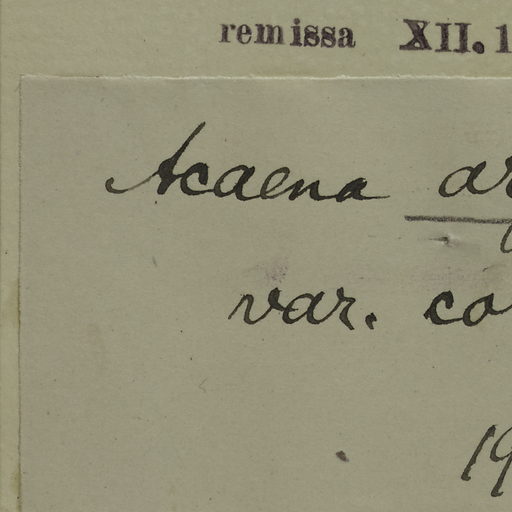 remissa XII. 1
Acaena ar
var. co
19